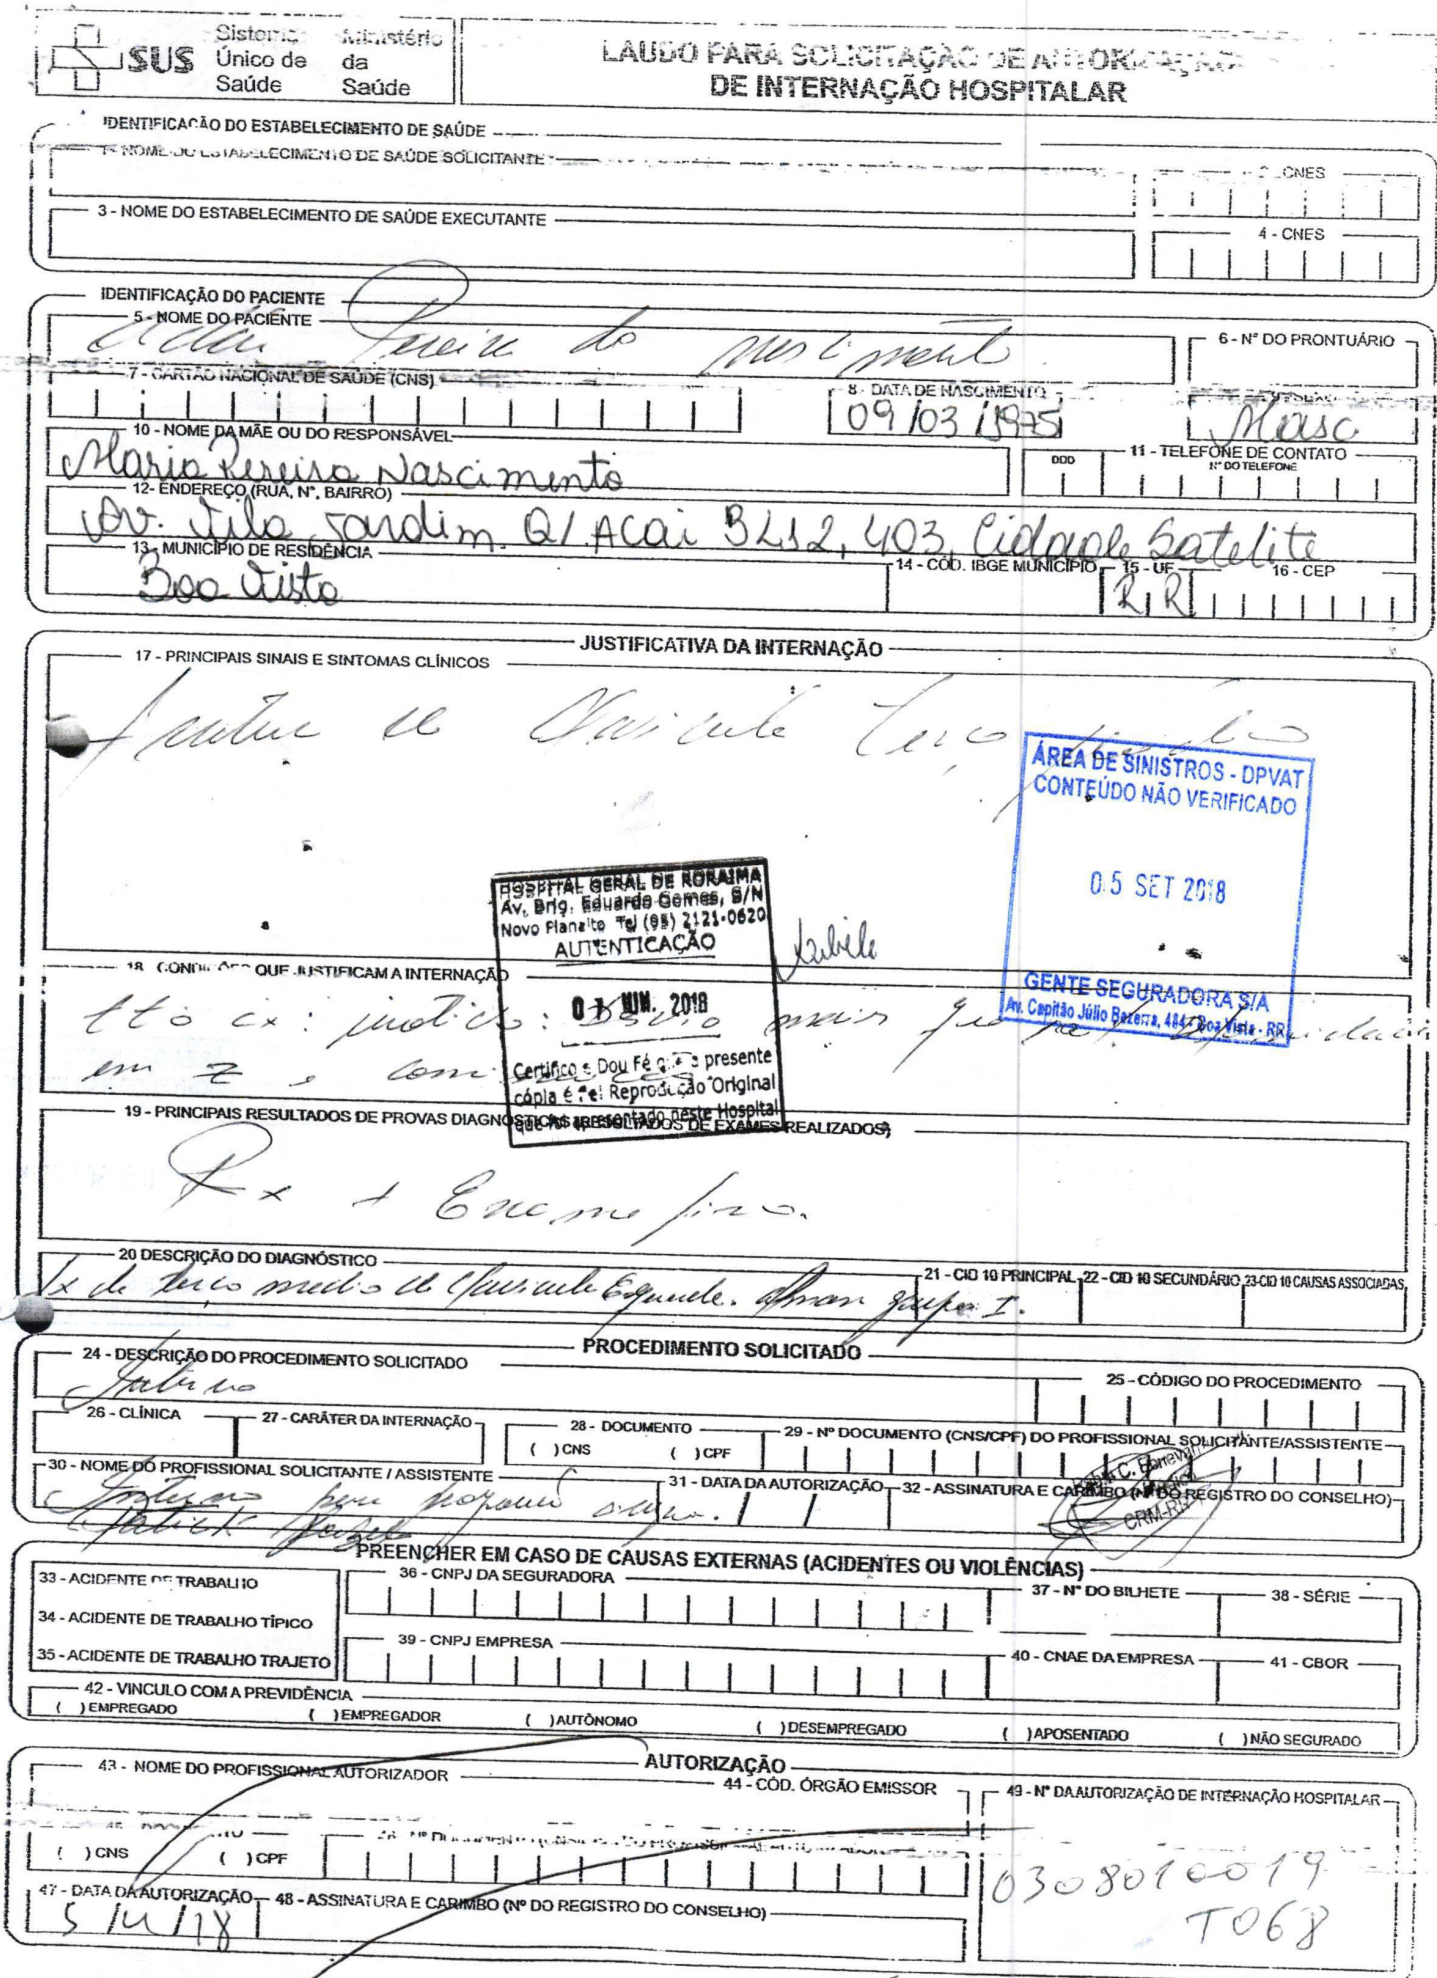 SUS
Sistema Único de Saúde
Ministério da Saúde
LAUDO PARA SOLICITAÇÃO DE AUTORIZAÇÃO
DE INTERNAÇÃO HOSPITALAR
IDENTIFICAÇÃO DO ESTABELECIMENTO DE SAÚDE
1 - NOME DO ESTABELECIMENTO DE SAÚDE SOLICITANTE
2 - CNES
3 - NOME DO ESTABELECIMENTO DE SAÚDE EXECUTANTE
4 - CNES
IDENTIFICAÇÃO DO PACIENTE
5 - NOME DO PACIENTE
Pereira do
6 - Nº DO PRONTUÁRIO
7 - CARTÃO NACIONAL DE SAÚDE (CNS)
8 - DATA DE NASCIMENTO
09/03/1975
Masc
10 - NOME DA MÃE OU DO RESPONSÁVEL
Maria Pereira Nascimento
11 - TELEFONE DE CONTATO
DDD
Nº DO TELEFONE
12- ENDEREÇO (RUA, Nº, BAIRRO)
Av. Vila Jardim. Q/ Acai BL12, 403, Cidade Satelite
13 - MUNICÍPIO DE RESIDÊNCIA
Boa Vista
14 - CÓD. IBGE MUNICÍPIO
15 - UF
RR
16 - CEP
JUSTIFICATIVA DA INTERNAÇÃO
17 - PRINCIPAIS SINAIS E SINTOMAS CLÍNICOS
Fratura de Clavicula Terço
ÁREA DE SINISTROS - DPVAT
CONTEÚDO NÃO VERIFICADO
05 SET 2018
GENTE SEGURADORA S/A
Av. Capitão Júlio Bezerra, Boa Vista - RR
HOSPITAL GERAL DE RORAIMA
Av. Brig. Eduardo Gomes, S/N
Novo Planalto Tel (95) 2121-0620
AUTENTICAÇÃO
2018
Certifico e Dou Fé que a presente
cópia é fiel Reprodução Original
que foi apresentado neste Hospital
18 - CONDIÇÕES QUE JUSTIFICAM A INTERNAÇÃO
tto cx: mais que
em Z e
19 - PRINCIPAIS RESULTADOS DE PROVAS DIAGNÓSTICAS (RESULTADOS DE EXAMES REALIZADOS)
Rx + Exame fisico.
20 DESCRIÇÃO DO DIAGNÓSTICO
Fx de terco medio de clavicula Esquerda. Allman grupo I.
21 - CID 10 PRINCIPAL
22 - CID 10 SECUNDÁRIO
23-CID 10 CAUSAS ASSOCIADAS
PROCEDIMENTO SOLICITADO
24 - DESCRIÇÃO DO PROCEDIMENTO SOLICITADO
25 - CÓDIGO DO PROCEDIMENTO
26 - CLÍNICA
27 - CARÁTER DA INTERNAÇÃO
28 - DOCUMENTO
( ) CNS ( ) CPF
29 - Nº DOCUMENTO (CNS/CPF) DO PROFISSIONAL SOLICITANTE/ASSISTENTE
30 - NOME DO PROFISSIONAL SOLICITANTE / ASSISTENTE
Patrick
31 - DATA DA AUTORIZAÇÃO
32 - ASSINATURA E CARIMBO (Nº DO REGISTRO DO CONSELHO)
CRM-RR
PREENCHER EM CASO DE CAUSAS EXTERNAS (ACIDENTES OU VIOLÊNCIAS)
33 - ACIDENTE DE TRABALHO
34 - ACIDENTE DE TRABALHO TÍPICO
35 - ACIDENTE DE TRABALHO TRAJETO
36 - CNPJ DA SEGURADORA
37 - Nº DO BILHETE
38 - SÉRIE
39 - CNPJ EMPRESA
40 - CNAE DA EMPRESA
41 - CBOR
42 - VINCULO COM A PREVIDÊNCIA
( ) EMPREGADO ( ) EMPREGADOR ( ) AUTÔNOMO ( ) DESEMPREGADO ( ) APOSENTADO ( ) NÃO SEGURADO
AUTORIZAÇÃO
43 - NOME DO PROFISSIONAL AUTORIZADOR
44 - CÓD. ÓRGÃO EMISSOR
49 - Nº DA AUTORIZAÇÃO DE INTERNAÇÃO HOSPITALAR
( ) CNS ( ) CPF
0308010019
T068
47 - DATA DA AUTORIZAÇÃO
48 - ASSINATURA E CARIMBO (Nº DO REGISTRO DO CONSELHO)